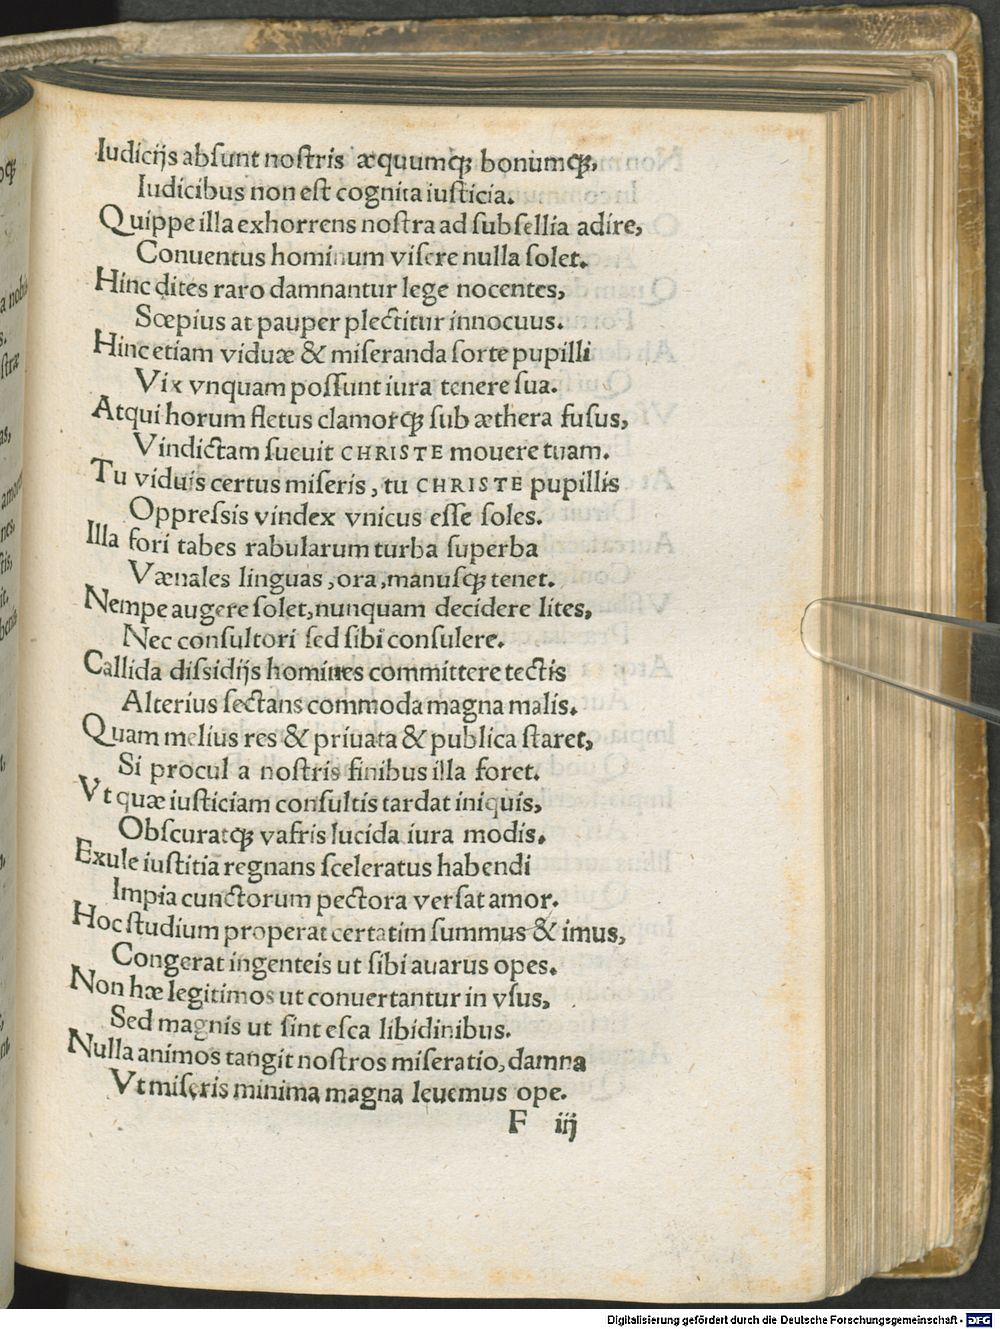 Iudicijs absunt nostris æquumqꝫ bonumqꝫ,
Iudicibus non est cognita iusticia.
Quippe illa exhorrens nostra ad subsellia adire,
Conuentus hominum visere nulla solet.
Hinc dites raro damnantur lege nocentes,
Sœpius at pauper plectitur innocuus.
Hinc etiam viduæ & miseranda sorte pupilli
Vix vnquam possunt iura tenere sua.
Atqui horum fletus clamorqꝫ sub æthera fusus,
Vindictam sueuit CHRISTE mouere tuam.
Tu viduis certus miseris, tu CHRISTE pupillis
Oppressis vindex vnicus esse soles.
Illa fori tabes rabularum turba superba
Vænales linguas, ora, manusqꝫ tenet.
Nempe augere solet, nunquam decidere lites,
Nec consultori sed sibi consulere.
Callida dissidijs homines committere tectis
Alterius sectans commoda magna malis.
Quam melius res & priuata & publica staret,
Si procul a nostris finibus illa foret.
Vt quæ iusticiam consultis tardat iniquis,
Obscuratqꝫ vafris lucida iura modis.
Exule iustitia regnans sceleratus habendi
Impia cunctorum pectora versat amor.
Hoc studium properat certatim summus & imus,
Congerat ingenteis ut sibi auarus opes.
Non hæ legitimos ut conuertantur in vsus,
Sed magnis ut sint esca libidinibus.
Nulla animos tangit nostros miseratio, damna
Vt miseris minima magna leuemus ope.
F iij
Digitalisierung gefördert durch die Deutsche Forschungsgemeinschaft - DFG